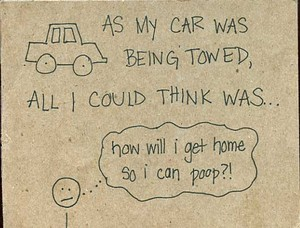 AS MY CAR WAS
BEING TOWED,
ALL I COULD THINK WAS...
how will i get home
so i can poop?!